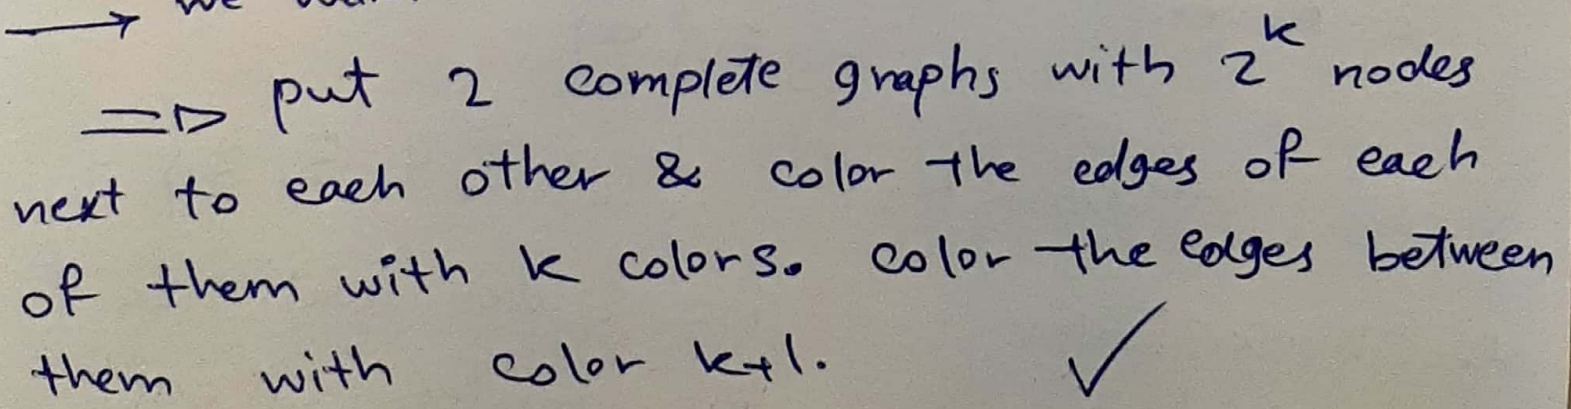 →
=> put 2 complete graphs with 2^k nodes
next to each other & color the edges of each
of them with k colors. color the edges between
them with color k+1. ✓